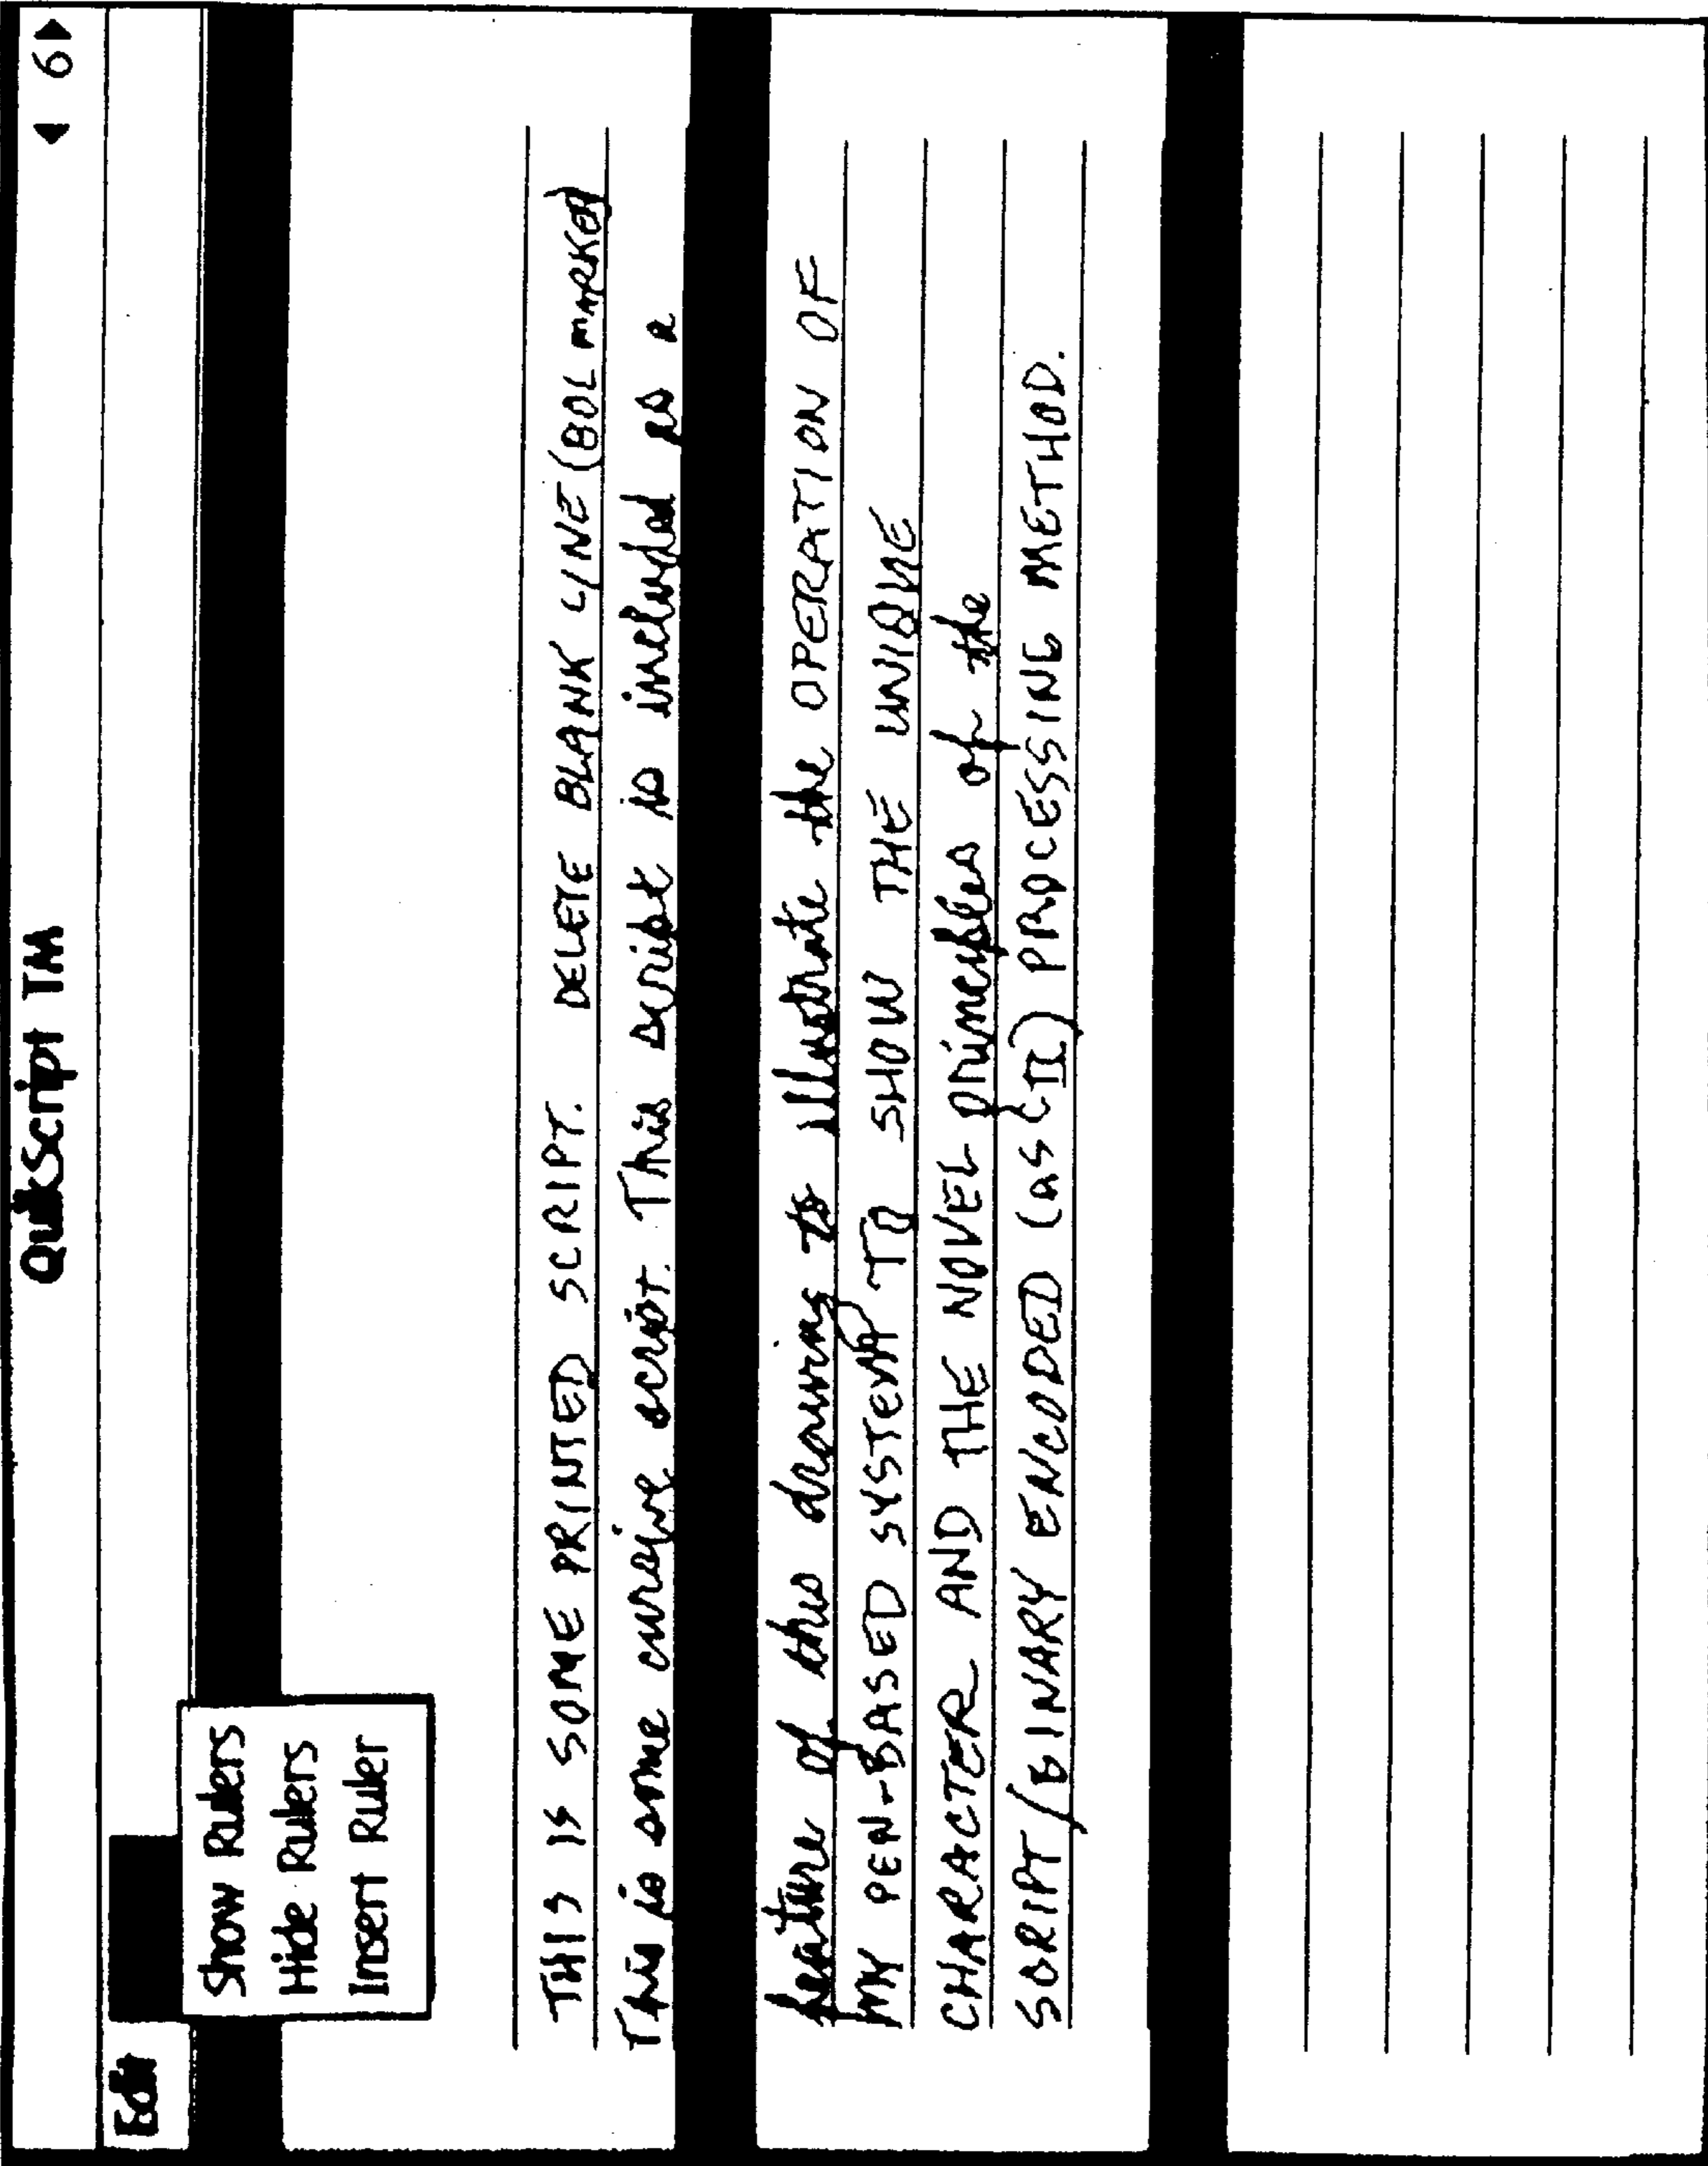 QuikScript TM
◀ 6 ▶
Edit
Show Rulers
Hide Rulers
Insert Ruler
THIS IS SOME PRINTED SCRIPT. DELETE BLANK LINE (BOL MARKED)
This is some cursive script. This script is included as a
feature of this drawing to illustrate the OPERATION OF
MY PEN-BASED SYSTEM TO SHOW THE UNIQUE
CHARACTER AND THE NOVEL principles of the
SCRIPT/BINARY ENCODED (ASCII) PROCESSING METHOD.